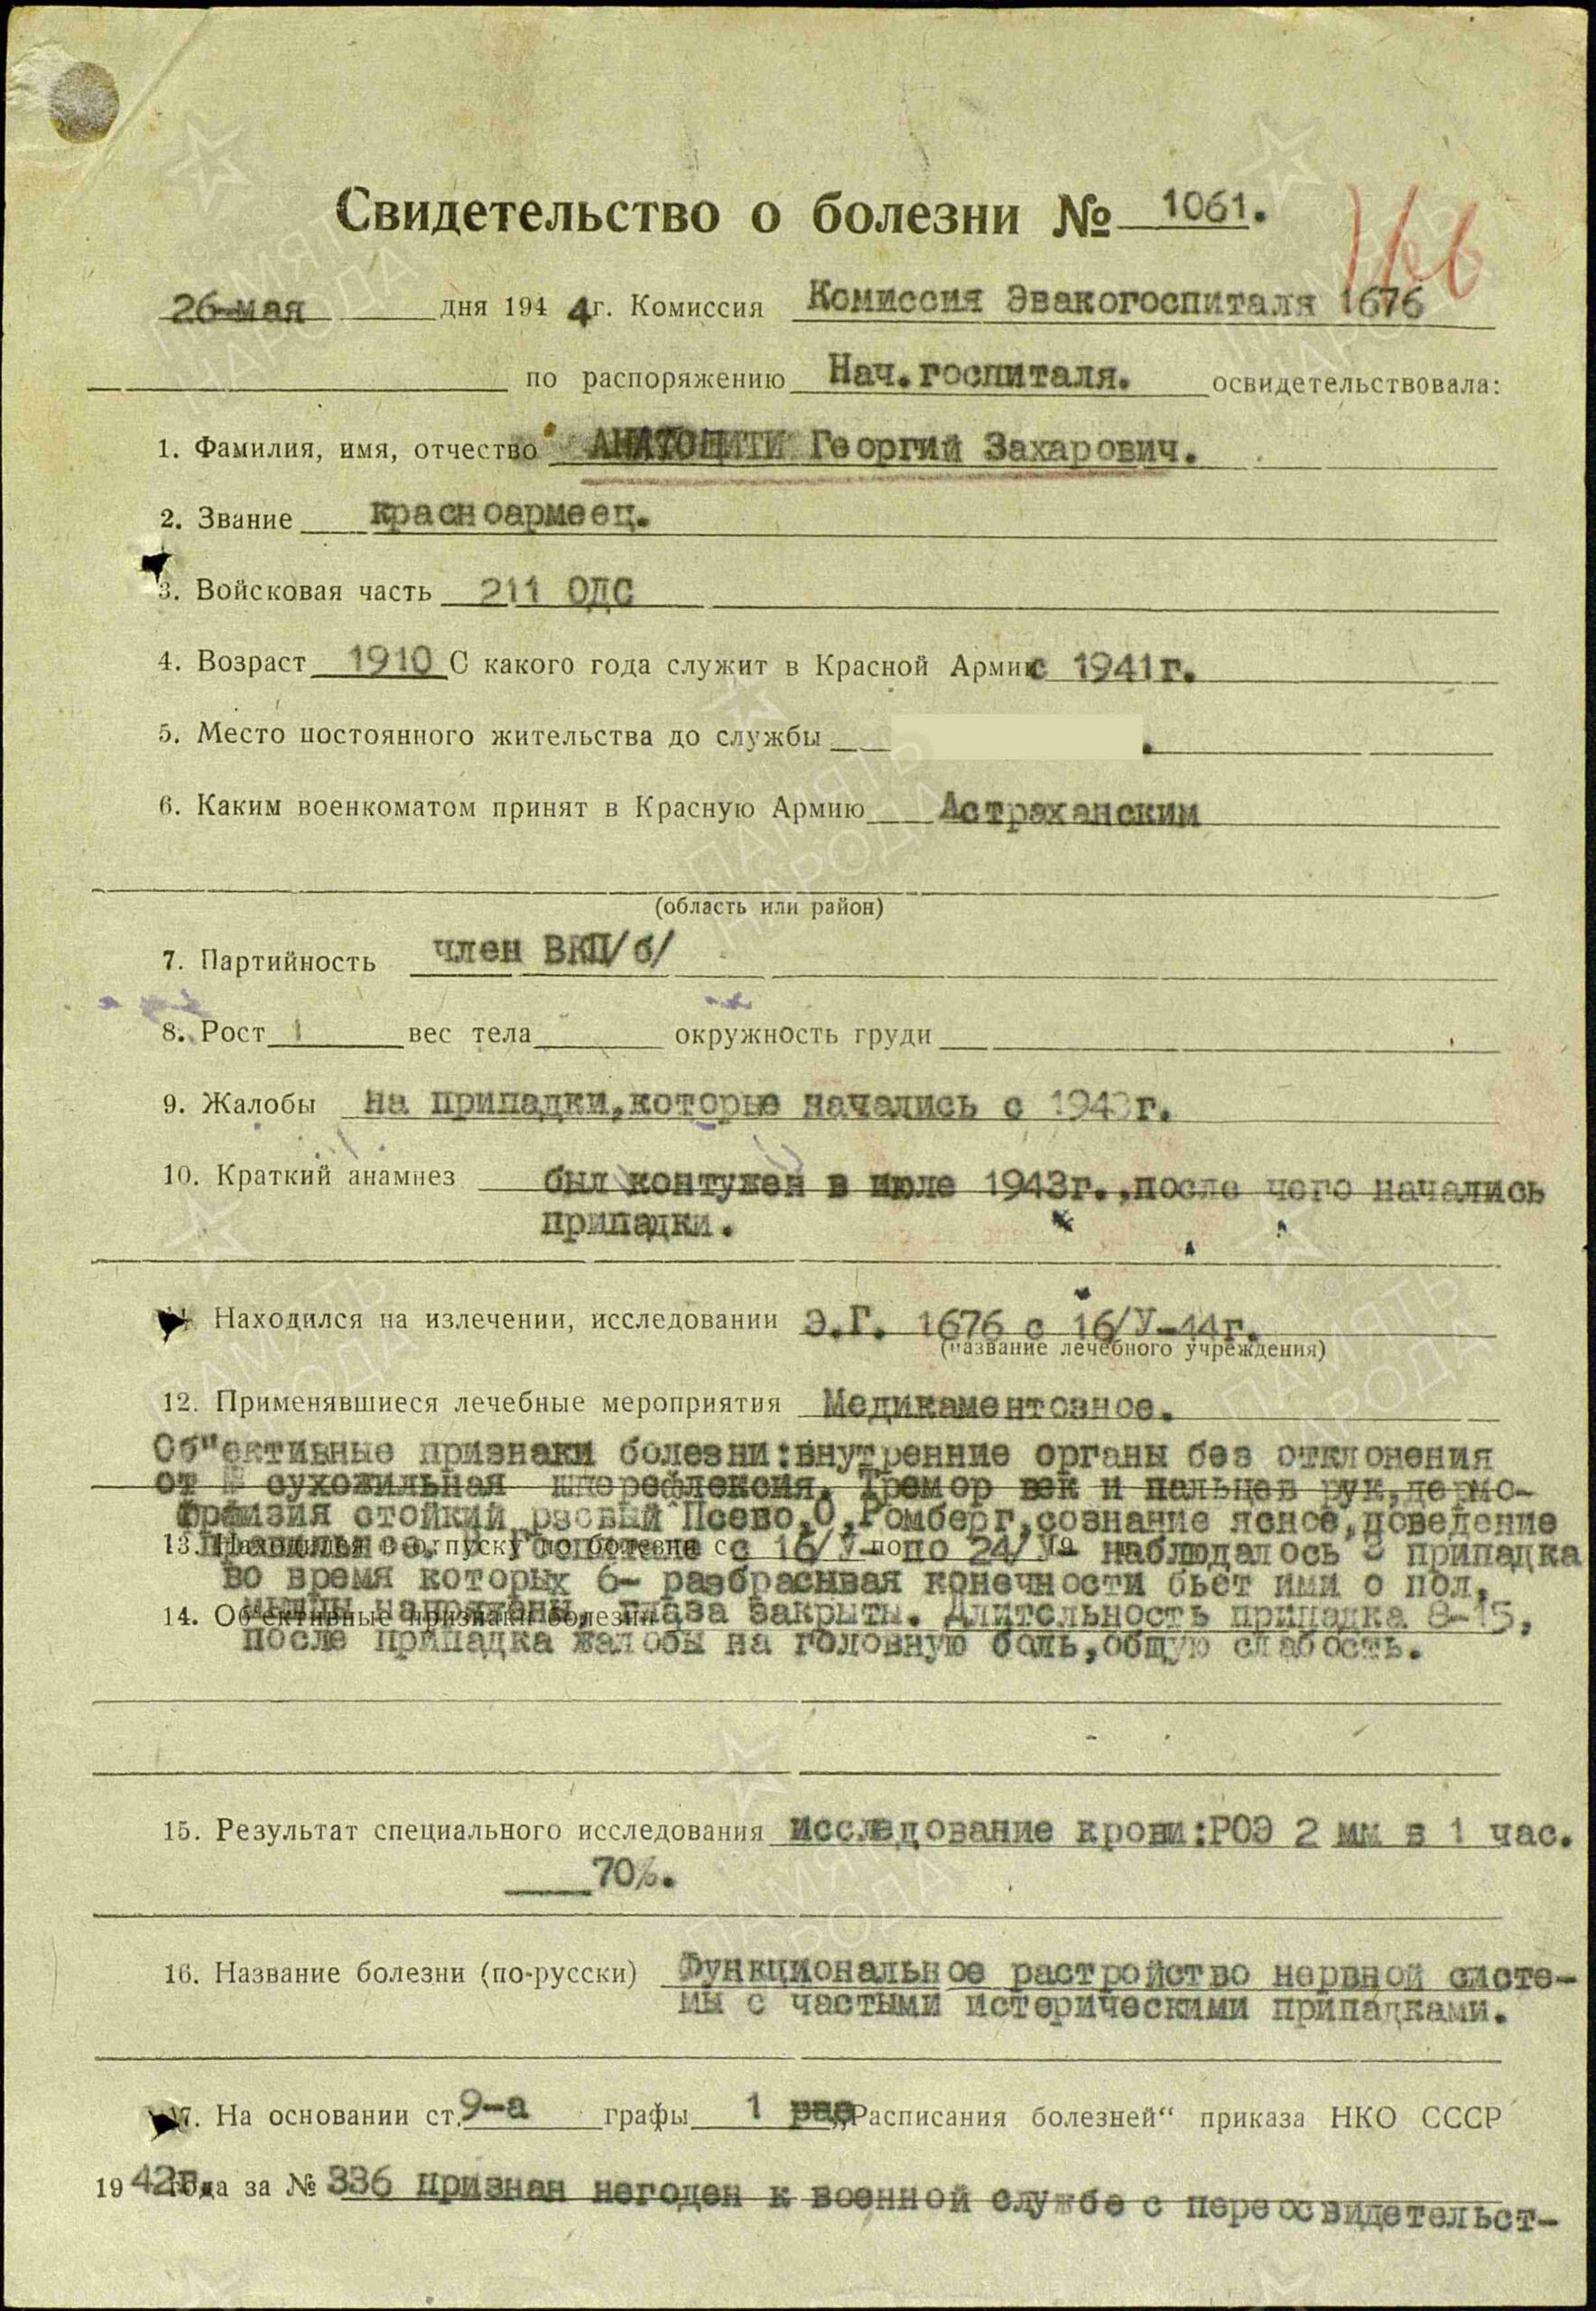 Свидетельство о болезни № 1061.
116
26 мая дня 1944г. Комиссия Комиссия Эвакогоспиталя 1676
по распоряжению Нач.госпиталя. освидетельствовала:
1. Фамилия, имя, отчество Георгий Захарович.
2. Звание красноармеец.
3. Войсковая часть 211 ОДС
4. Возраст 1910 С какого года служит в Красной Армии с 1941г.
5. Место постоянного жительства до службы
6. Каким военкоматом принят в Красную Армию Астраханским
(область или район)
7. Партийность член ВКП/б/
8. Рост вес тела окружность груди
9. Жалобы на припадки,которые начались с 1943г.
10. Краткий анамнез был контужен в июле 1943г.,после чего начались
припадки.
Находился на излечении, исследовании Э.Г. 1676 с 16/У-44г.
(название лечебного учреждения)
12. Применявшиеся лечебные мероприятия Медикаментозное.
Об"ективные признаки болезни:внутренние органы без отклонения
от сухожильная Тремор век и пальцев рук,дермо-
стойкий Ромберг,сознание ясное,поведение
13. Находился в отпуску по болезни с с 16/У по по 24/У наблюдалось припадка
во время которых 6- разбрасывая конечности бьет ими о пол,
14. Об'ективные признаки болезни мышцы напряжены, глаза закрыты. Длительность припадка 8-15,
после припадка жалобы на головную боль,общую слабость.
15. Результат специального исследования исследование крови:РОЭ 2 мм в 1 час.
70%.
16. Название болезни (по-русски) Функциональное растройство нервной систе-
мы с частыми истерическими припадками.
17. На основании ст. 9-а графы 1 „Расписания болезней“ приказа НКО СССР
1942 года за № 336 признан негоден к военной службе с переосвидетельст-
ПАМЯТЬ
НАРОДА